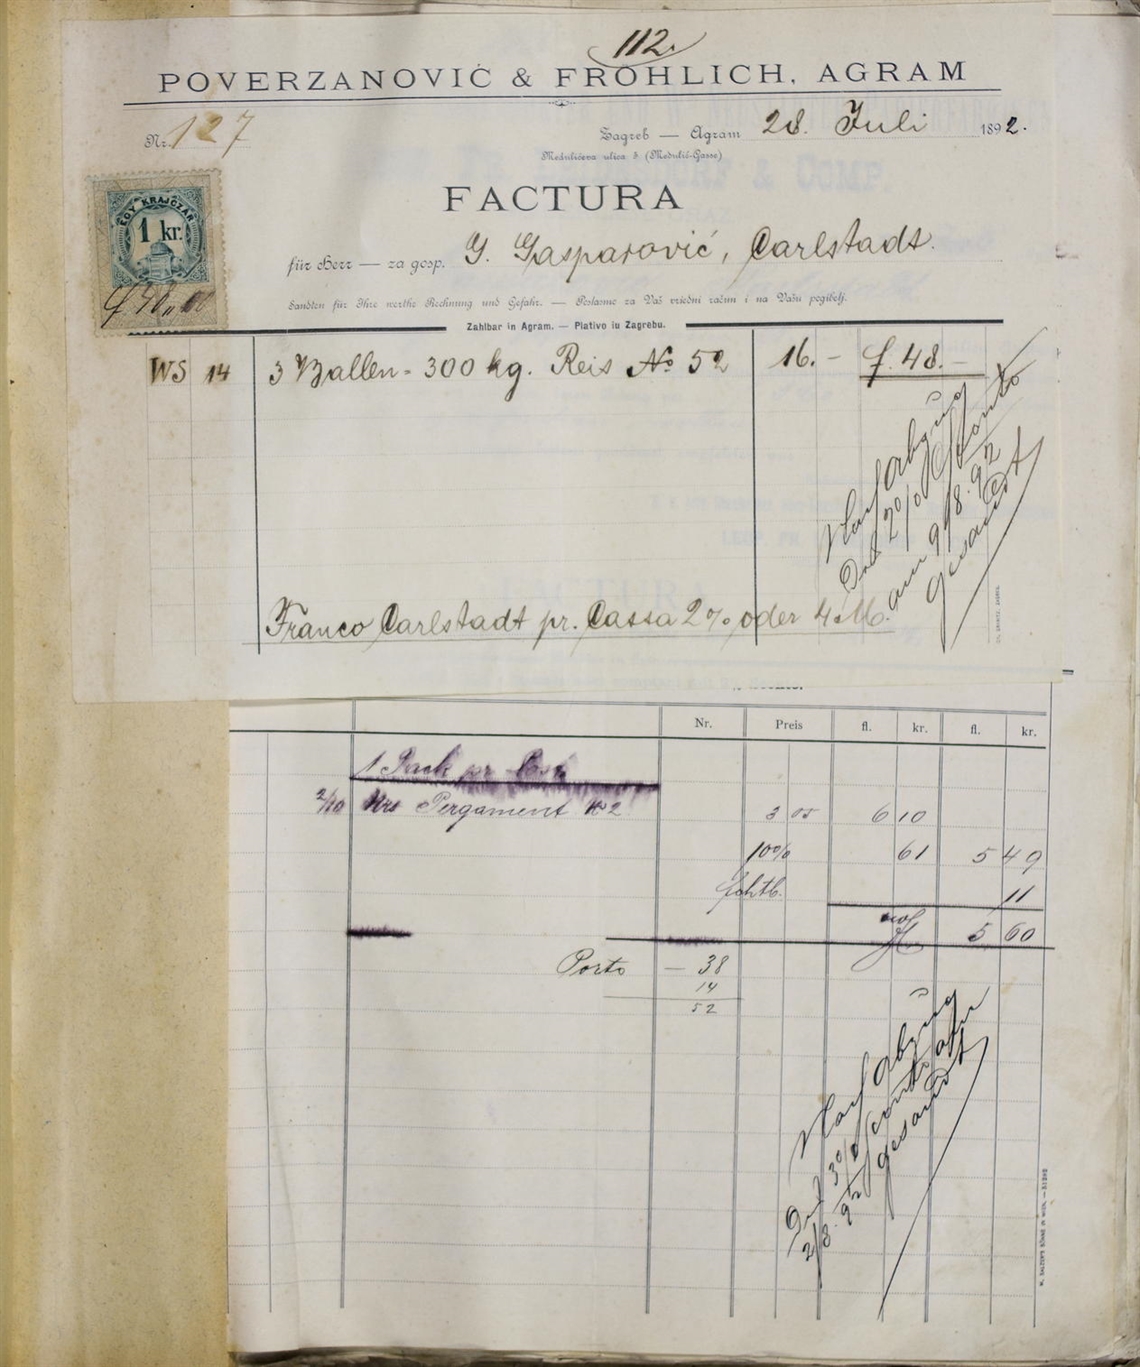 112.
POVERZANOVIĆ & FRÖHLICH, AGRAM
Nr. 127
Zagreb — Agram 28. Juli 1892.
Medulićeva ulica 3 (Medulić-Gasse)
EGY KRAJCZÁR
1 kr.
FACTURA
für Herr — za gosp. G. Gasparović, Carlstadt.
Sandten für Ihre werthe Rechnung und Gefahr. — Poslasmo za Vaš vriedni račun i na Vašu pogibelj.
Zahlbar in Agram. — Plativo iu Zagrebu.
WS 14 3 Ballen = 300 kg. Reis No 52 16.— f. 48.—
Nach Abzug
2% Sconto
am 9/8.92
gesandt
Franco Carlstadt pr. Cassa 2% oder 4 M.
Nr. Preis fl. kr. fl. kr.
1 Pack pr. Post
2/10 Pergament No 2 3 05 6 10
10% 61 5 49
11
5 60
Porto — 38
14
52
Nach Abzug
3% Sconto am
2/8.92 gesandt